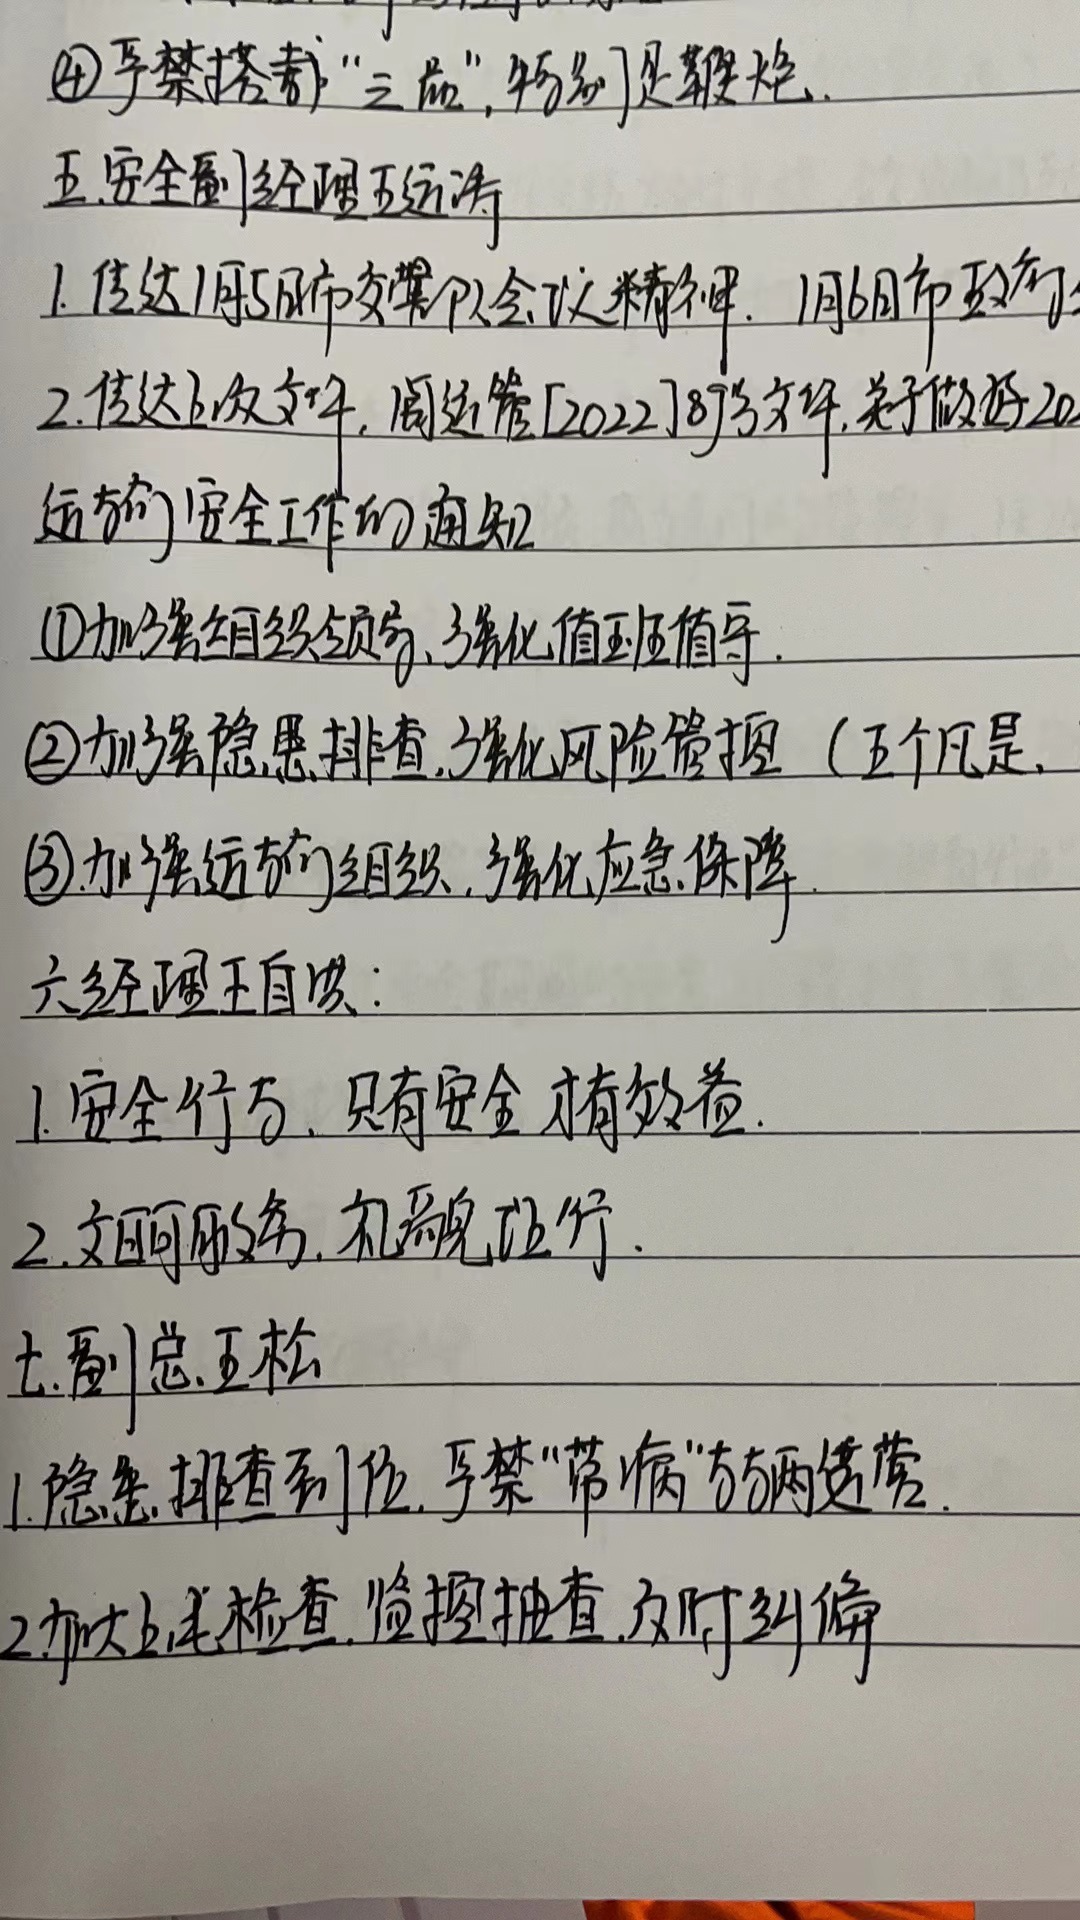 ④严禁搭载“三品”，特别是鞭炮.
五.安全副经理王远涛
1.传达1月5日市交警队会议精神. 1月6日市政府
2.传达上级文件,周运管[2022]8号文件,关于做好20
运输安全工作的通知
①加强组织领导、强化值班值守.
②加强隐患排查,强化风险管控 (五个凡是、
③加强运输组织,强化应急保障.
六经理王自洪:
1.安全行车、只有安全才有效益.
2.文明服务.礼貌 行.
七.副总.王松
1.隐患排查到位.严禁“带病”车辆运营.
2.加大 检查.监控抽查.及时纠偏